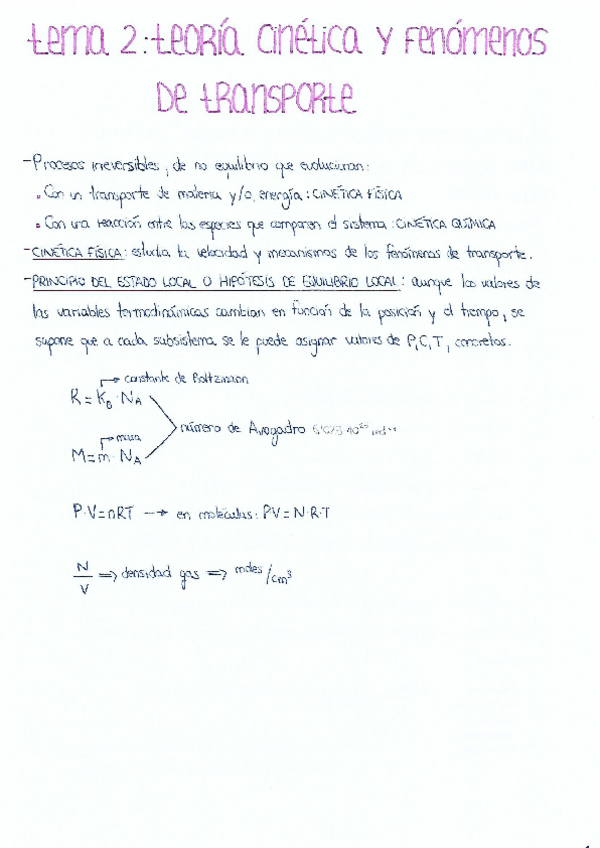 tema 2: teoría cinética y fenómenos
de transporte
- Procesos irreversibles, de no equilibrio que evolucionan:
• Con un transporte de materia y/o energía: CINÉTICA FÍSICA
• Con una reacción entre las especies que componen el sistema: CINÉTICA QUÍMICA
- CINÉTICA FÍSICA: estudia la velocidad y mecanismos de los fenómenos de transporte.
- PRINCIPIO DEL ESTADO LOCAL O HIPÓTESIS DE EQUILIBRIO LOCAL: aunque los valores de
las variables termodinámicas cambian en función de la posición y el tiempo, se
supone que a cada subsistema se le puede asignar valores de P, C, T, concretos.
constante de Boltzmann
R = K_B · N_A
número de Avogadro
masa
M = m · N_A
P·V = nRT → en moléculas: PV = N·R·T
N/V ⇒ densidad gas ⇒ moles/cm³